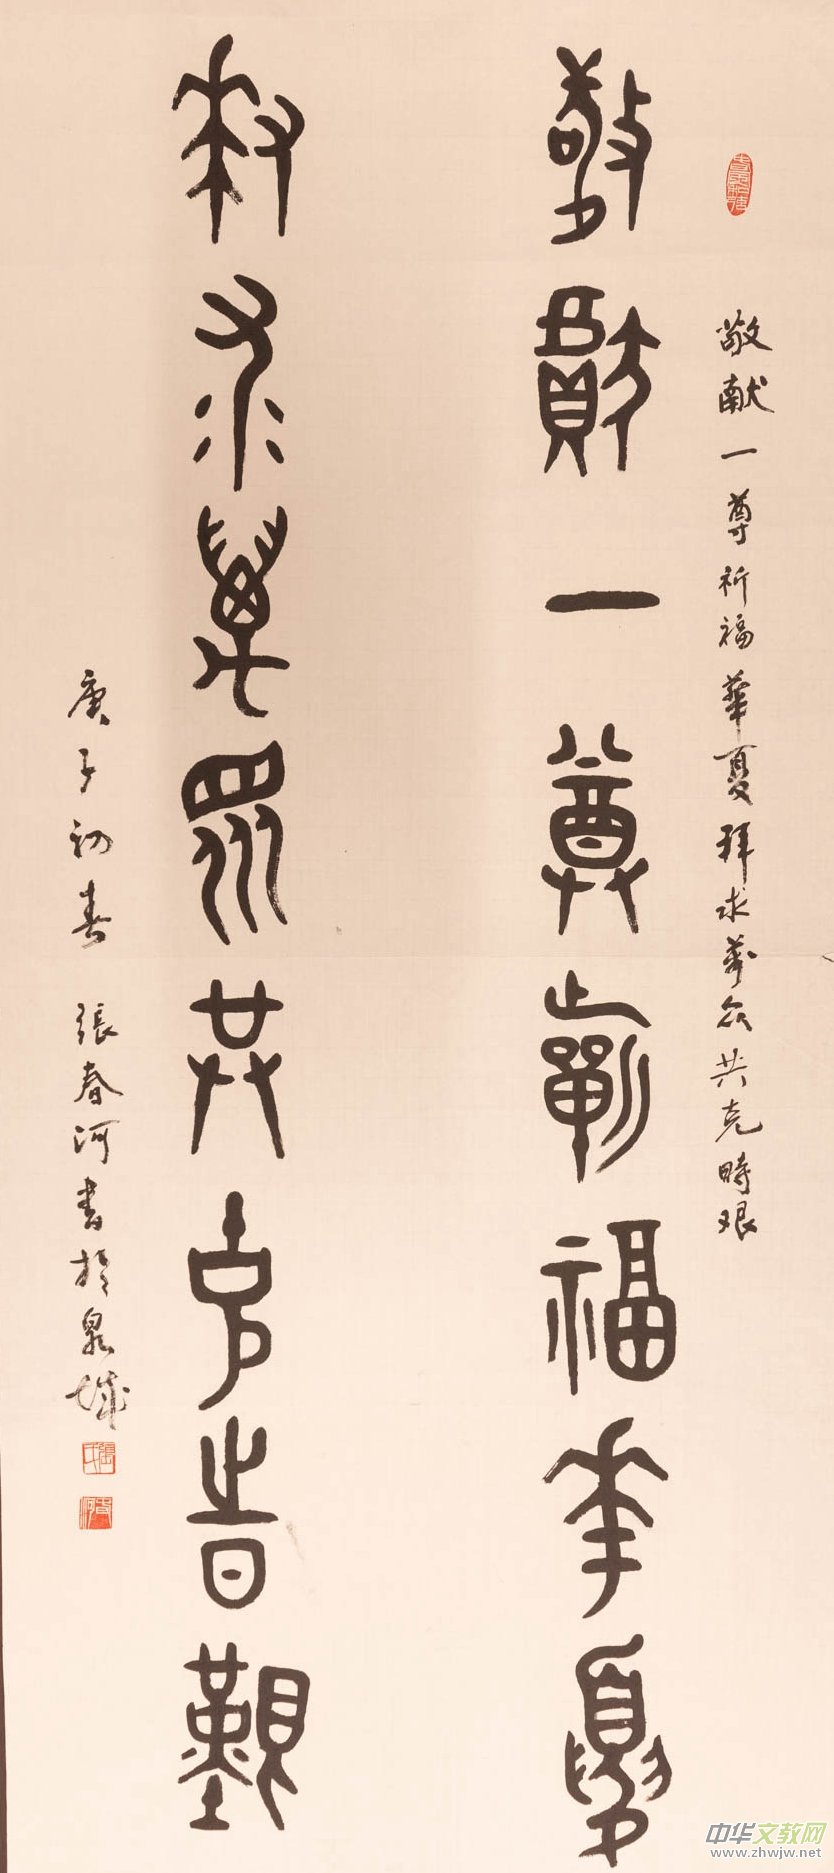 敬獻一尊祈福華夏
拜求萬眾共克時艱
敬献一尊祈福華夏拜求萬众共克時艱
庚子初春 張春河書於泉城
中华文教网
www.zhwjw.net